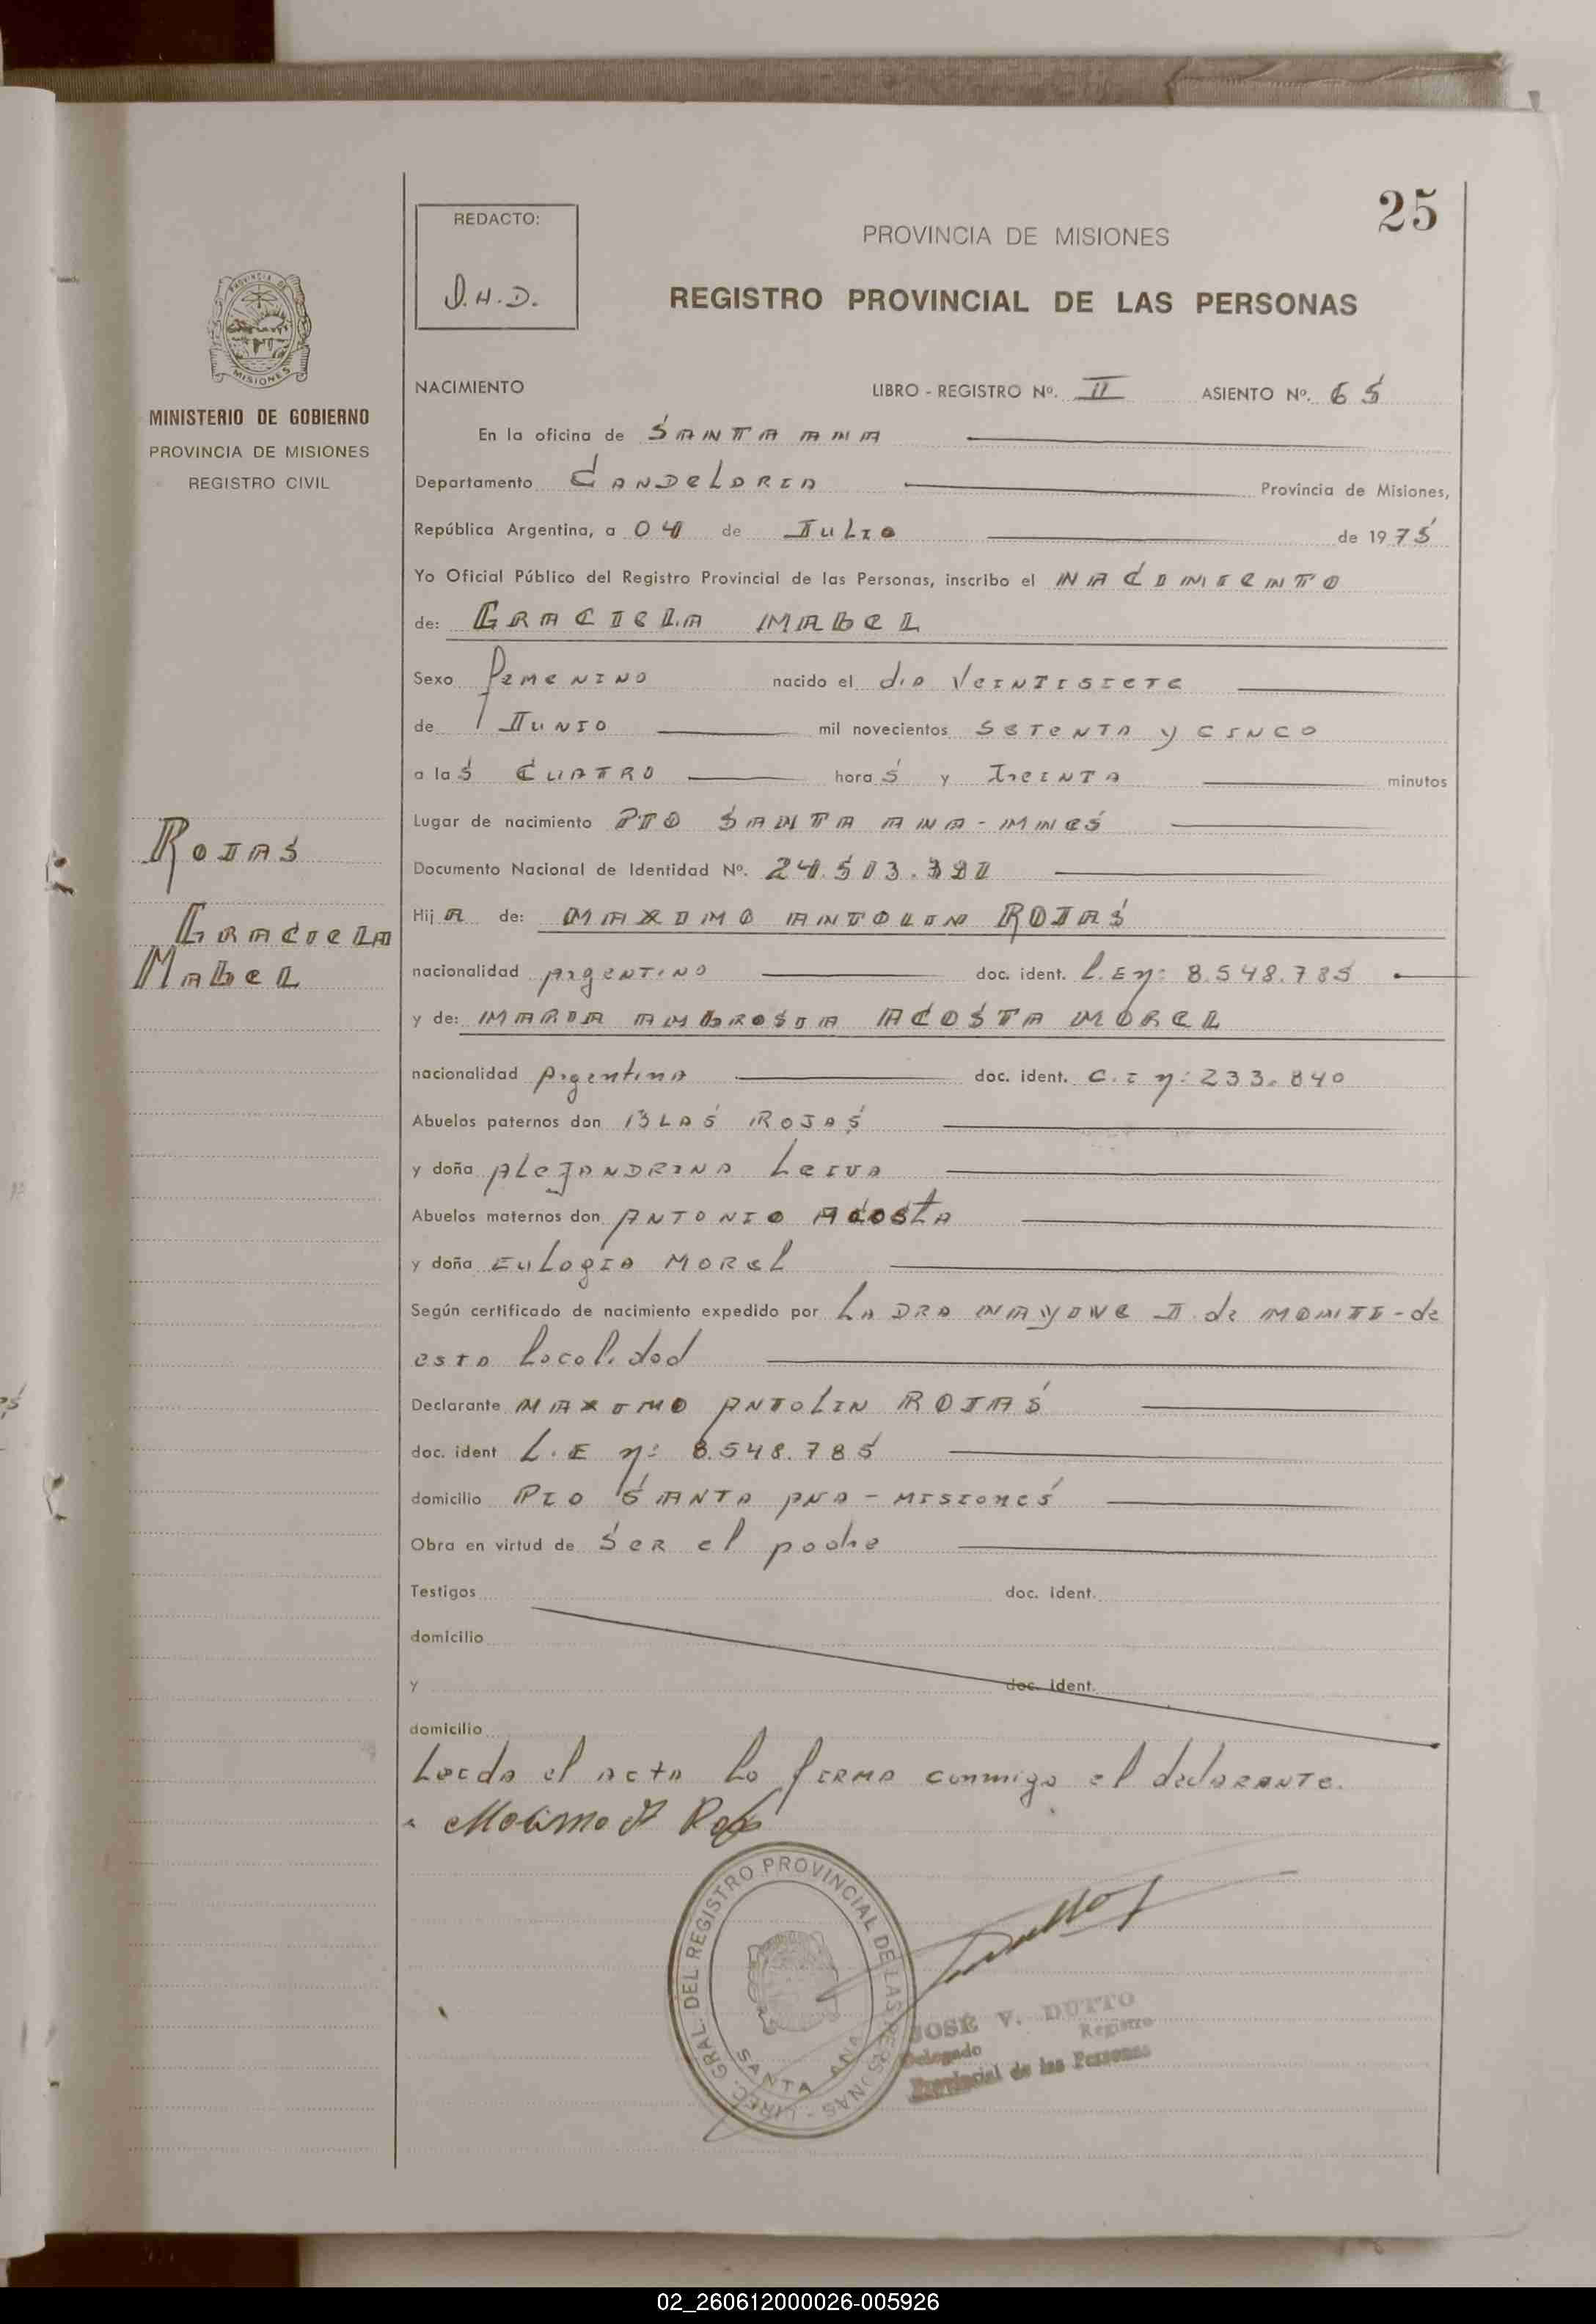 25
REDACTO:
J.H.D.
PROVINCIA DE MISIONES
REGISTRO PROVINCIAL DE LAS PERSONAS
PROVINCIA DE
MISIONES
MINISTERIO DE GOBIERNO
PROVINCIA DE MISIONES
REGISTRO CIVIL
NACIMIENTO LIBRO - REGISTRO Nº. II ASIENTO Nº. 65
En la oficina de SANTA ANA
Departamento CANDELARIA Provincia de Misiones,
República Argentina, a 04 de JULIO de 1975
Yo Oficial Público del Registro Provincial de las Personas, inscribo el NACIMIENTO
de: GRACIELA MABEL
Sexo FEMENINO nacido el día VEINTISIETE
de JUNIO mil novecientos SETENTA y CINCO
a las CUATRO horas y TREINTA minutos
Lugar de nacimiento PTO SANTA ANA - MNES
Documento Nacional de Identidad Nº. 24.503.
ROJAS
GRACIELA
MABEL
HijA de: MAXIMO ANTOLIN ROJAS
nacionalidad ARgENTINO doc. ident. L.E n: 8.548.785
y de: MARIA AMBROSIA ACOSTA MOREL
nacionalidad Argentina doc. ident. C.I n: 233.840
Abuelos paternos don BLAS ROJAS
y doña ALEJANDRINA LEIVA
Abuelos maternos don ANTONIO ACOSTA
y doña EULOGIA MOREL
Según certificado de nacimiento expedido por LA DRA J. de MONTI - de
esta localidad
Declarante MAXIMO ANTOLIN ROJAS
doc. ident L.E n: 8.548.785
domicilio PTO SANTA ANA - MISIONES
Obra en virtud de SER el padre
Testigos doc. ident.
domicilio
y doc. ident.
domicilio
Leída el acta la firma conmigo el declarante.
DIREC. GRAL. DEL REGISTRO PROVINCIAL DE LAS PERSONAS -
SANTA ANA
JOSÉ V. DUTTO
Delegado Registro
Provincial de las Personas
02_260612000026-005926